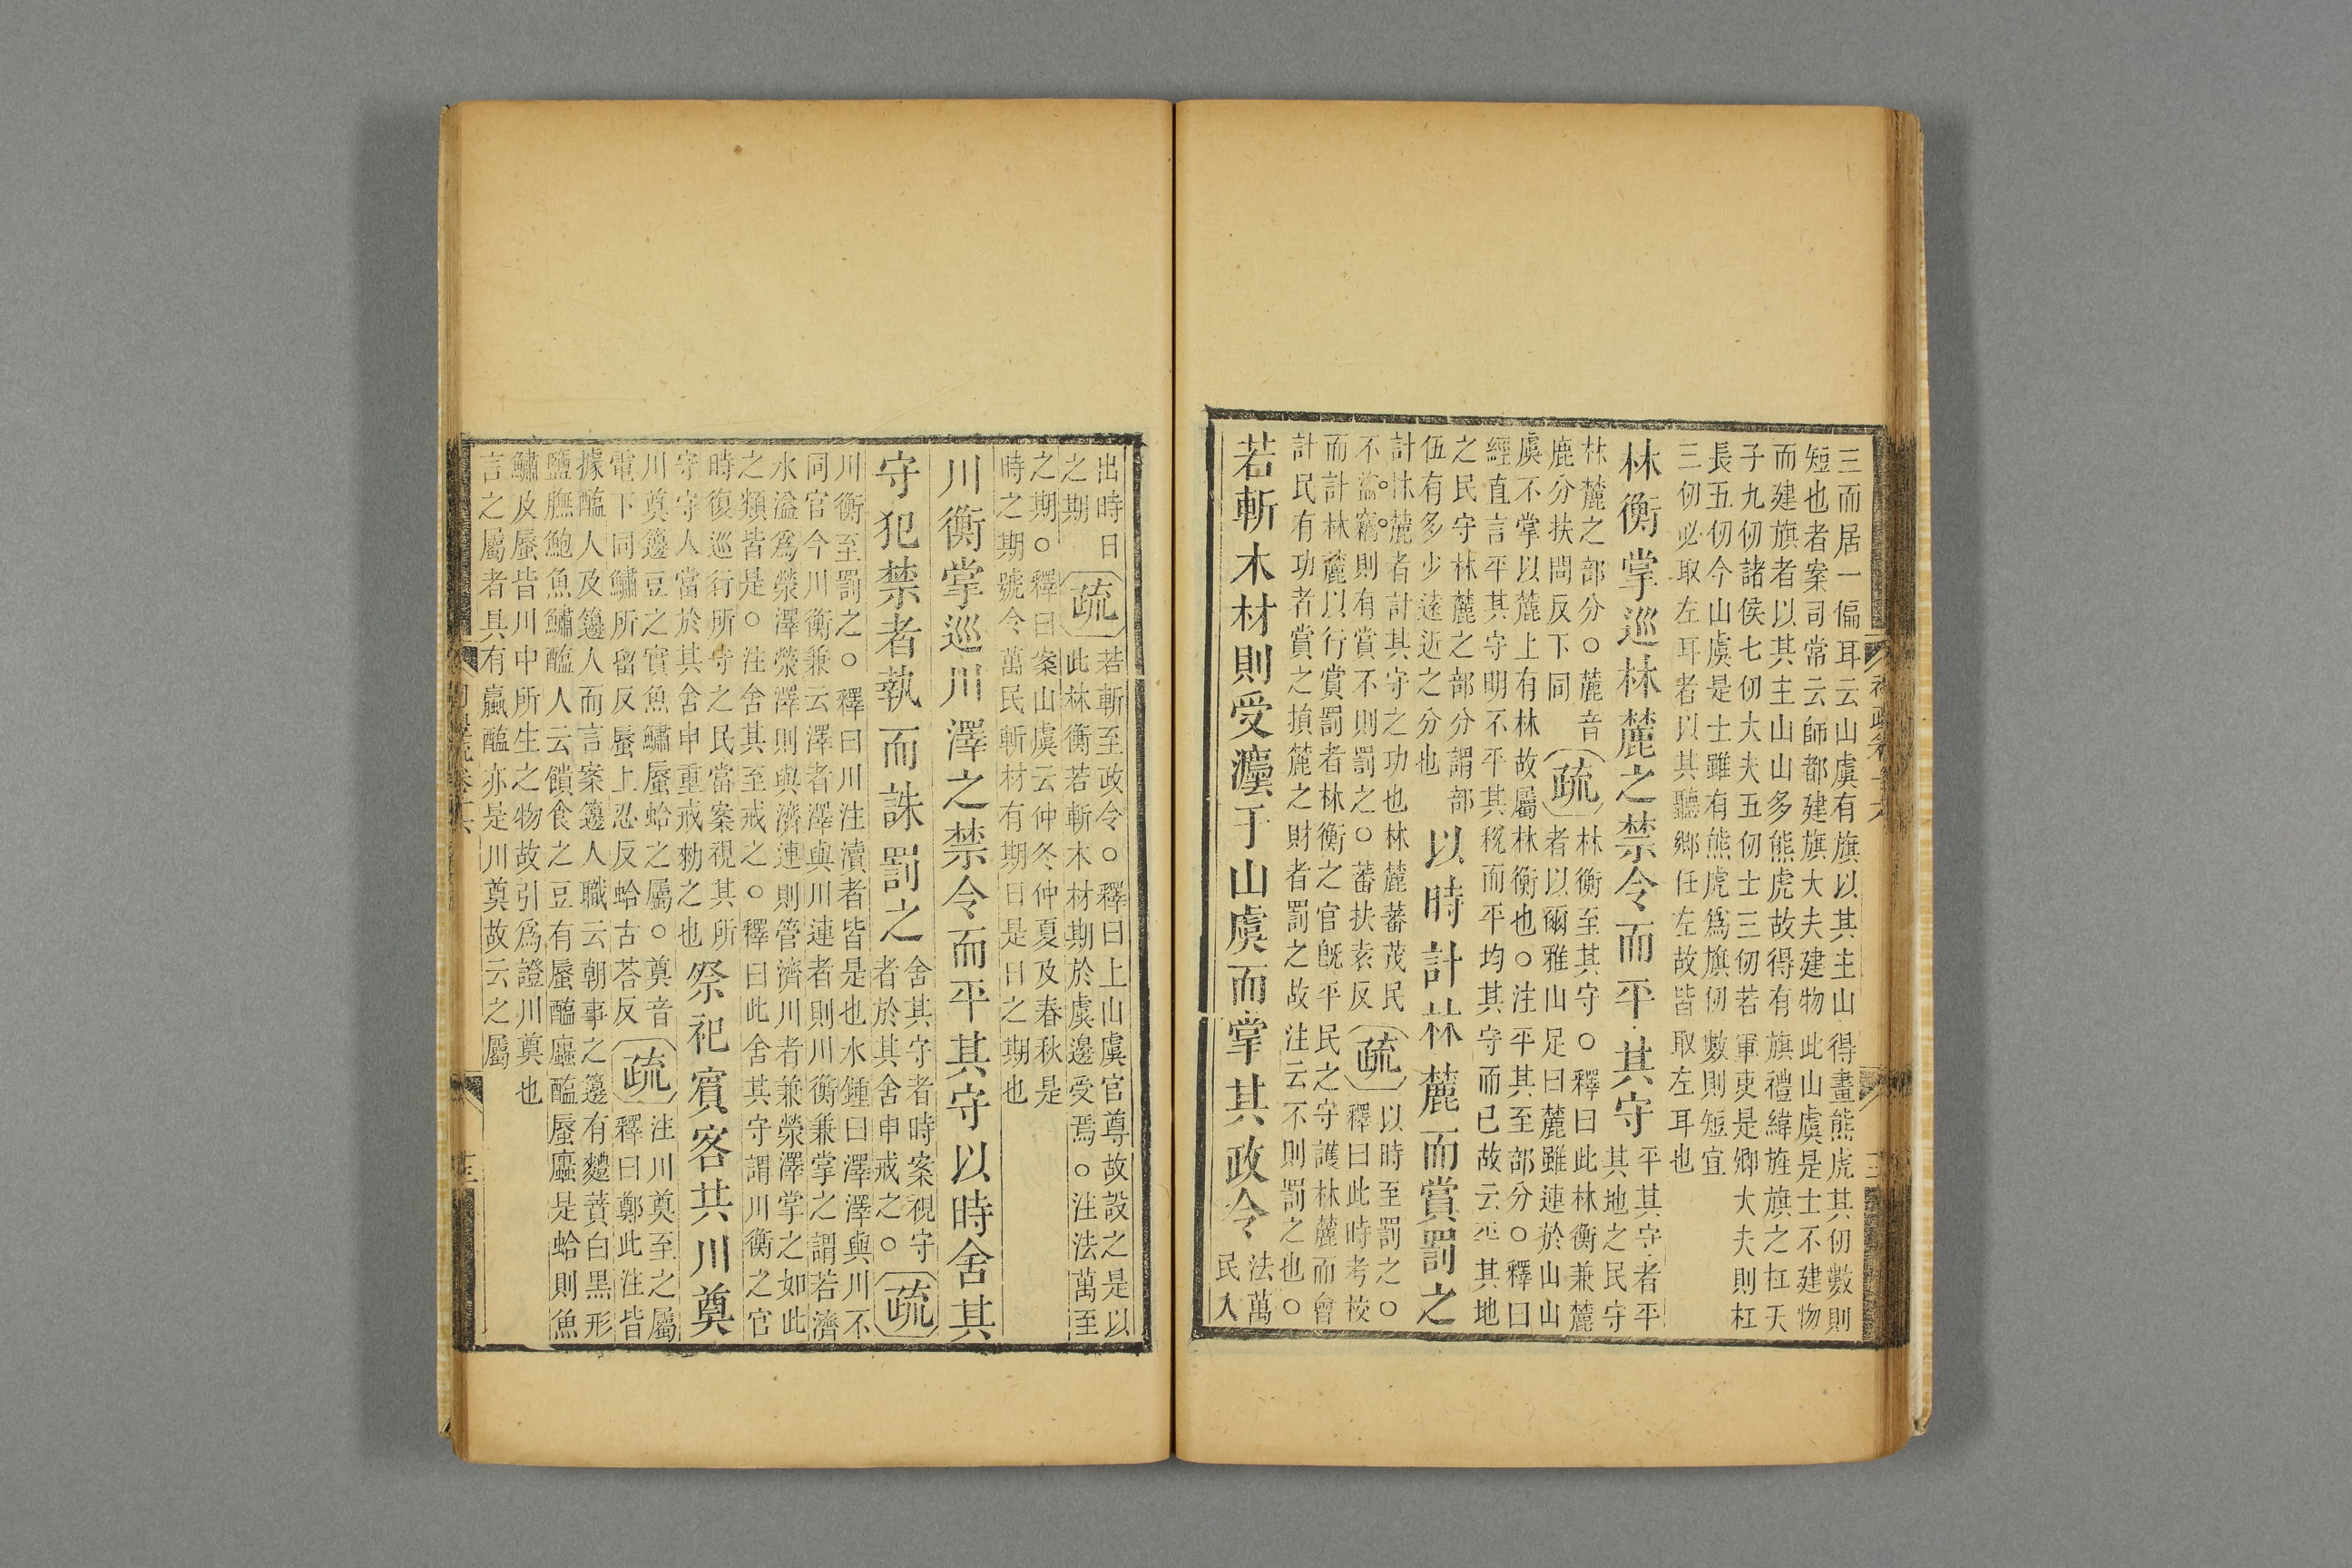 三而居一偏耳云山虞有旗以其主山得畫熊虎其仞數則
短也者案司常云師都建旗大夫建物此山虞是士不建物
而建旗者以其主山山多熊虎故得有旗禮緯旌旗之杠天
子九仞諸侯七仞大夫五仞士三仞若軍吏是卿大夫則杠
長五仞今山虞是士雖有熊虎爲旗仞數則短宜
三仞必取左耳者以其聽鄉任左故皆取左耳也
林衡掌巡林麓之禁令而平其守
平其守者平
其地之民守
林麓之部分○麓音
鹿分扶問反下同
疏
林衡至其守○釋曰此林衡兼麓
者以爾雅山足曰麓雖連於山山
虞不掌以麓上有林故屬林衡也○注平其至部分○釋曰
經直言平其守明不平其稅而平均其守而已故云平其地
之民守林麓之部分謂部
伍有多少遠近之分也
以時計林麓而賞罰之
計林麓者計其守之功也林麓蕃茂民
不盜竊則有賞不則罰之○蕃扶袁反
疏
以時至罰之○
釋曰此時考校
而計林麓以行賞罰者林衡之官旣平民之守護林麓而會
計民有功者賞之損麓之財者罰之故注云不則罰之也○
若斬木材則受灋于山虞而掌其政令
法萬
民入
出時日
之期
疏
若斬至政令○釋曰上山虞官尊故設之是以
此林衡若斬木材期於虞邊受焉○注法萬至
之期○釋曰案山虞云仲冬仲夏及春秋是
時之期號令萬民斬材有期日是日之期也
川衡掌巡川澤之禁令而平其守以時舍其
守犯禁者執而誅罰之
舍其守者時案視守
者於其舍申戒之○
疏
川衡至罰之○釋曰川注瀆者皆是也水鍾曰澤澤與川不
同官今川衡兼云澤者澤與川連者則川衡兼掌之謂若濟
水溢爲滎澤滎澤則與濟連則管濟川者兼滎澤掌之如此
之類皆是○注舍其至戒之○釋曰此舍其守謂川衡之官
時復巡行所守之民當案視其所
守守人當於其舍申重戒勑之也
祭祀賓客共川奠
川奠籩豆之實魚鱐蜃蛤之屬○奠音
電下同鱐所留反蜃上忍反蛤古荅反
疏
注川奠至之屬
釋曰鄭此注皆
據醢人及籩人而言案籩人職云朝事之籩有麷蕡白黑形
鹽膴鮑魚鱐醢人云饋食之豆有蜃醢蠯醢蜃蠯是蛤則魚
鱐及蜃皆川中所生之物故引爲證川奠也
言之屬者具有蠃醢亦是川奠故云之屬